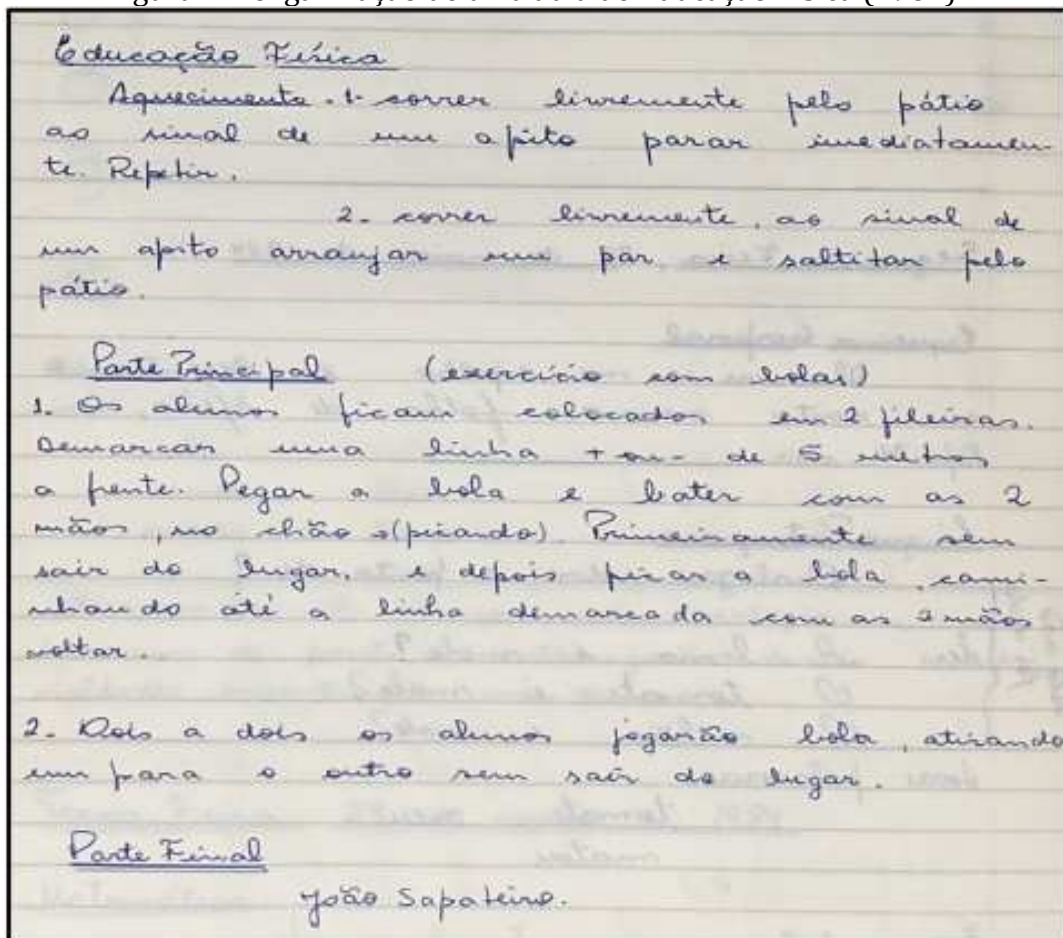 Educação Física
Aquecimento. 1- correr livremente pelo pátio
ao sinal de um apito parar imediatamen-
te. Repetir.
2- correr livremente, ao sinal de
um apito arranjar um par, e saltitar pelo
pátio.
Parte Principal (exercício com bolas)
1. Os alunos ficam colocados em 2 fileiras.
Demarcar uma linha + ou - de 5 metros
a frente. Pegar a bola e bater com as 2
mãos, no chão (picando). Primeiramente sem
sair do lugar, e depois picar a bola, cami-
nhando até a linha demarcada com as 2 mãos
voltar.
2- Dois a dois os alunos jogarão bola, atirando
um para o outro sem sair do lugar.
Parte Final
João Sapateiro.